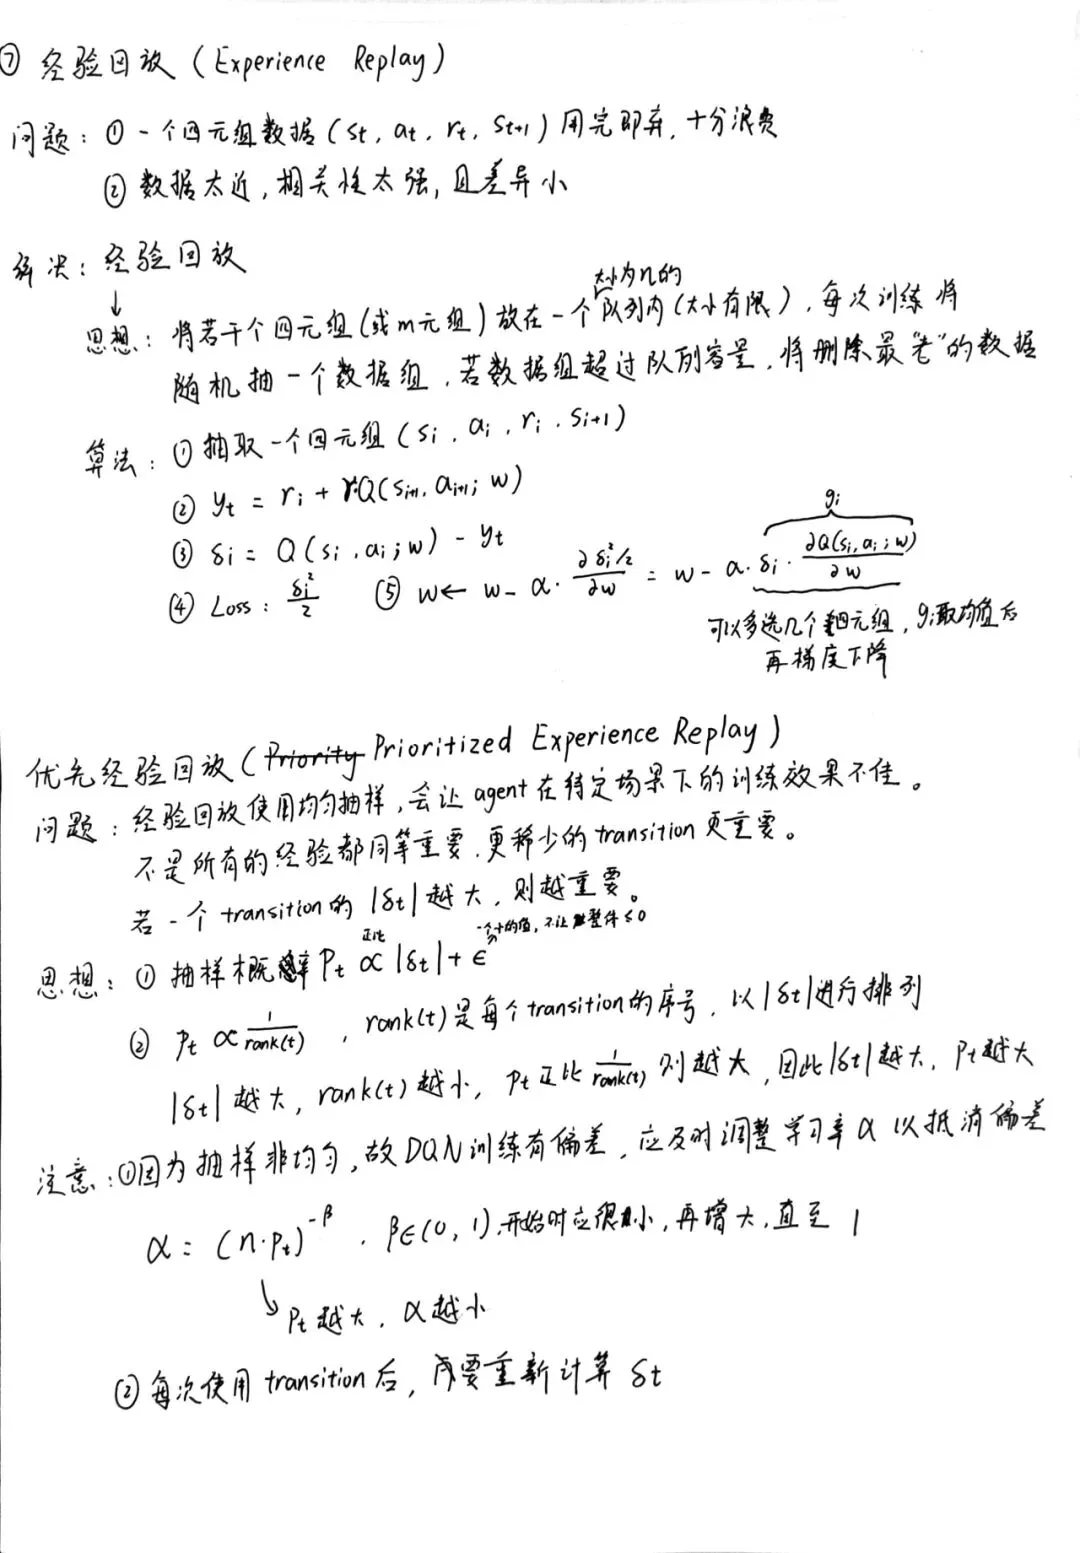 ⑦ 经验回放（Experience Replay）
问题：① 一个四元组数据（st, at, rt, st+1）用完即弃，十分浪费
② 数据太近，相关性太强，且差异小
解决：经验回放
↓
大小为n的
思想：将若干个四元组（或m元组）放在一个队列内（大小有限），每次训练将
随机抽一个数据组，若数据组超过队列容量，将删除最"老"的数据
算法：① 抽取一个四元组（si, ai, ri, si+1）
② yt = ri + γ·Q(si+1, ai+1; w)
gi
③ δi = Q(si, ai; w) - yt
④ Loss: δi²/2 ⑤ w ← w - α · ∂δi²/2 / ∂w = w - α · δi · ∂Q(si, ai; w) / ∂w
可以多选几个四元组，gi取均值后
再梯度下降
优先经验回放（Priority Prioritized Experience Replay）
问题：经验回放使用均匀抽样，会让agent在特定场景下的训练效果不佳。
不是所有的经验都同等重要，更稀少的transition更重要。
若一个transition的|δt|越大，则越重要。
正比 一个小的值，不让整体≤0
思想：① 抽样概率 Pt ∝ |δt| + ϵ
② Pt ∝ 1/rank(t)，rank(t)是每个transition的序号，以|δt|进行排列
|δt|越大，rank(t)越小，Pt正比 1/rank(t) 则越大，因此|δt|越大，Pt越大
注意：①因为抽样非均匀，故DQN训练有偏差，应及时调整学习率α以抵消偏差
α = (n·Pt)^-β，β∈(0, 1)，开始时应很小，再增大，直至1
↳ Pt越大，α越小
② 每次使用transition后，需要重新计算δt